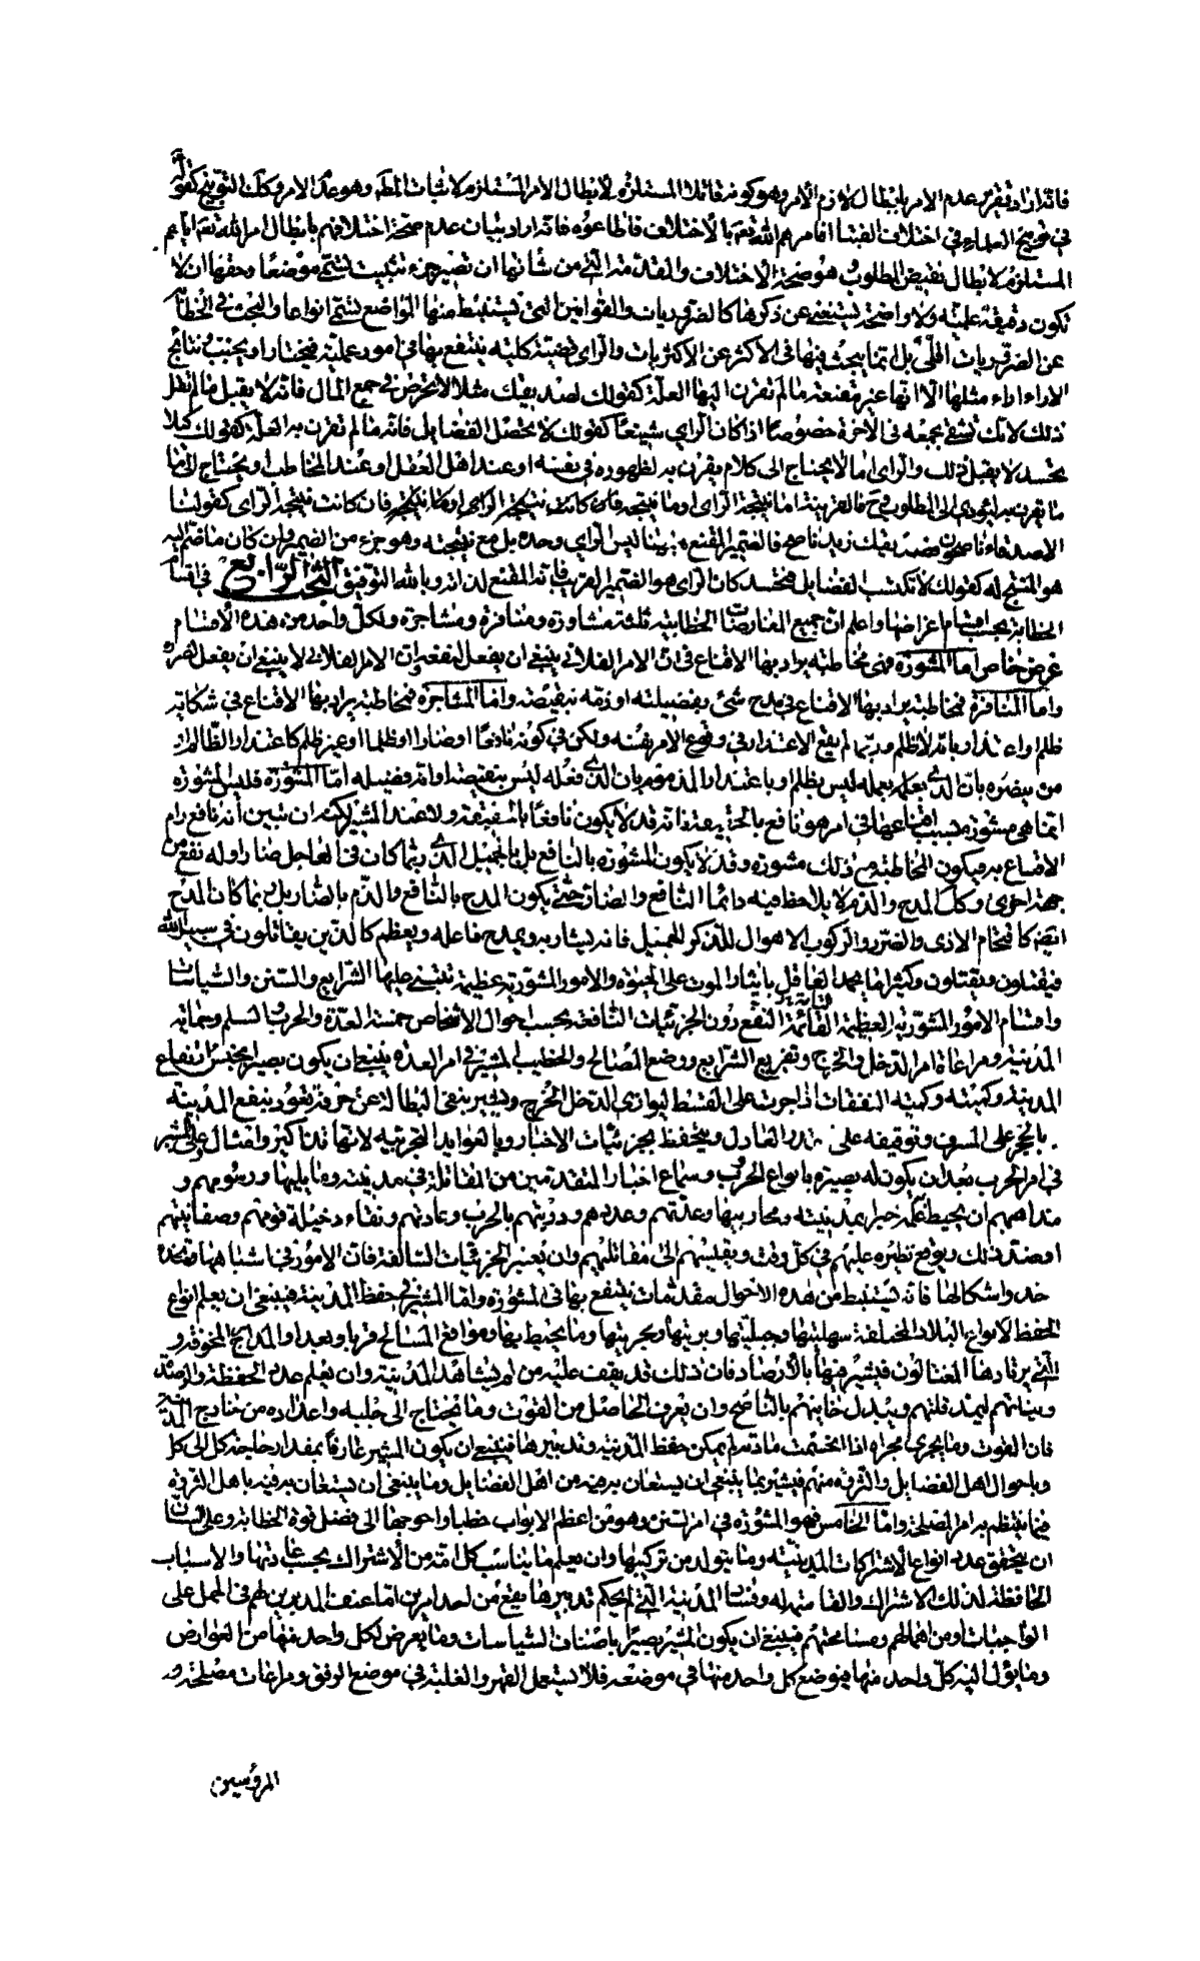 فانه اراد تقرير عدم الامر بابطال لازم الامر وهو كونه قائلا المستلزم لابطال الامر المستلزم لاثبات المط وهو عدم الامر وكك التوبيخ كقوله
في توبيخ العلماء في اختلاف الفتيا افامرهم الله تعه بالاختلاف فاطاعوه فانه اراد بيان عدم صحة اختلافهم بابطال امر الله تعه اياهم
المستلزم لابطال نقيض المطلوب هو صحة الاختلاف والمقدمة التي من شأنها ان تصير جزء تثبيت تسمى موضعا وحقها ان لا
تكون دقيقة علمية ولا واضحة يستغنى عن ذكرها كالضروريات والقوانين التي يستنبط منها المواضع تسمى انواعا والبحث في الخطابة
عن الضروريات اقلي بل انما يبحث فيها في الاكثر عن الاكثريات والراى قضية كلية ينتفع بها في امور عملية فيختار او يجتنب نتائج
الاراء اراء مثلها الا انها غير مقنعة ما لم تقرن اليها العلة كقولك لصديقك مثلا لا تحرص في جمع المال فانه لا يقبل ما لم تقل
ذلك لانك تشقى بجمعه في الآخرة خصوصا اذا كان الراي شنيعا كقولك لا تحصل الفضايل فانه ما لم تقرن به العلة كقولك كيلا
تحسد لا يقبل ذلك والراى اما لا يحتاج الى كلام يقرن به لظهوره في نفسه او عند اهل العقل او عند المخاطب او يحتاج الى ما
ما يقرن به ليؤدي الى المطلوب وح فالقرينة اما نتيجة الراى او ما ينتجه فان كانت نتيجة الراى كقولنا
الاصدقاء ناصحون فصديقك زيد ناصح فالضمير المقنع هيهنا ليس الراي وحده بل مع نتيجته وهو جزء من الضمير وان كان ما ضم اليه
هو المنتج له كقولك لا تكتسب الفضايل فتحسد كان الراى هو الضمير القريب فانه المقنع لذاته وبالله التوفيق البحث الرابع في اقسام
الخطابة بحسب اقسام اغراضها واعلم ان جميع المفاوضات الخطابية ثلثة مشاورة ومنافرة ومشاجرة ولكل واحد من هذه الاقسام
غرض خاص اما المشورة فهي مخاطبة يراد بها الاقناع في ان الامر الفلاني ينبغي ان يفعل لنفعه او ان الامر الفلاني لا ينبغي ان يفعل لضره
واما المنافرة فمخاطبة يراد بها الاقناع في مدح شئ بفضيلته او ذمه بنقيصة واما المشاجرة فمخاطبة يراد بها الاقناع في شكاية
ظلم او اعتذار بانه لا ظلم وربما لم يقع الاعتذار في وقوع الامر نفسه ولكن في كونه نافعا او ضارا او ظلما او غير ظلم كاعتذار الظالم
من ينصره بان الذي يعلم بعمله ليس بظلم او باعتذار المذموم بان الذي فعله ليس بنقيصة او انه فضيله اما المشورة فليس المشورة
انما هي مشورة بسبب اقناعها في امر هو نافع بالحقيقة فانه قد لا يكون نافعا بالحقيقة ولا عند المشير لكنه ان تبين انه نافع رام
الاقناع به فيكون المخاطبة مع ذلك مشورة وقد لا يكون المشورة بالنافع بل بالجميل الذي ربما كان في العاجل ضارا وله نفع من
جهة اخرى وكك المدح والذم لا يلاحظ فيه دائما النافع والضار حتى يكون المدح بالنافع والذم بالضار بل ربما كان المدح
ايضا كاقتحام الاذى والضرر والركوب الاهوال للذكر الجميل فانه يشار به ويمدح فاعله ويعظم كالذين يقاتلون في سبيل الله
فيقتلون ويقتلون وكثيرا ما يحمد العاقل بايثار الموت على الحيوة والامور المشورية عظيمة تبتنى عليها الشرايع والسنن والسياسات
واقسام الامور المشورية العظيمة القائمة النفع دون الجزئيات النافعة بحسب احوال الاشخاص خمسة العدة والحرب والسلم وحماية
المدينة ومراعاة امر الدخل والخرج وتفريع الشرايع ووضع المصالح والخطيب المشير في امر العدة ينبغي ان يكون بصيرا بجنس ارتفاع
المدينة وكميته وكمية النفقات اذا جرت على القسط ليوازي الدخل الخرج ويشير بنفى البطالة عن حرفة تعود بنفع المدينة
بالحجر على المسرف وتوقيفه على القدر العادل ويتحفظ بجزئيات الاخبار وبالفوايد التجربيه لانها تذاكير وامثال على المشير
في امر الحرب بعد ان يكون له بصيرة بانواع الحروب وسماع اخبار المتقدمين من المقاتلة في مدينته وما يليها ورسومهم و
مذاهبهم ان يحيط علمه خبرا بمدينته ومحاربيها وعدتهم وعددهم ودربتهم بالحرب وعادتهم ونقاء دخيلة قومهم وصفائهم
او ضد ذلك ويوقع نظره عليهم في كل وقت ويقيسهم الى مقاتليهم وان يعتبر الجزئيات السالفة فان الامور في اشباهها متحدة
حدوا شكالها فانه يستنبط من هذه الاحوال مقدمات ينتفع بها في المشورة واما المشير في حفظ المدينة فينبغي ان يعلم انواع
الحفظ لانواع البلاد المختلفة سهليتها وجبليتها وبريتها وبحريتها وما يحيط بها ومواقع المسالح قربا وبعدا والمدارج المخوفة و
التي يرتادها المغتالون فيشير فيها بالارصاد فان ذلك قد يقف عليه من لم يشاهد المدينة وان يعلم عدد الحفظة والرصدة
وبيناتهم ليمد قلتهم ويبدل خاينهم بالناصح وان يعرف الحاصل من القوت وما يحتاج الى جلبه واعداده من خارج المدينة
فان القوت وما يجري مجراه اذا انحسمت مادته لم يمكن حفظ المدينة وتدبيرها فينبغي ان يكون المشير عارفا بمقدار حاجة كل الى كل
وباحوال اهل الفضايل والثروة منهم فيشير بما ينبغي ان يستعان به فيه من اهل الفضايل وما ينبغي ان يستعان به فيه باهل الثروة
فيما ينتظم به امر المصلحة واما الخامس فهو المشورة في امر السنن وهو من اعظم الابواب خطبا واحوجها الى فضل قوة الخطابة وعلى السان
ان يتحقق عدد انواع الاشتراكات المدنية وما يتولد من تركيبها وان يعلم ما يناسب كل امة من الاشتراك بحسب عادتها والاسباب
الحافظة لذلك الاشتراك والقاسمة له وفساد المدينة التي لم يحكم تدبيرها يقع من احد امرين اما عنف المدبرين لهم في الحمل على
الواجبات او من اهمالهم ومسامحتهم فينبغي ان يكون المشير بصيرا باصناف السياسات وما يعرض لكل واحد منها من العوارض
وما يؤل اليه كل واحد منها فيوضع كل واحد منها في موضعه فلا يستعمل القهر والغلبة في موضع الرفق ومراعات مصلحة و
المرؤسين